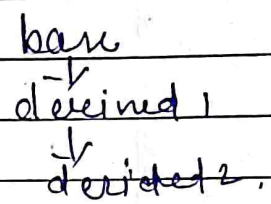 base
↓
derived 1
↓
derived 2.